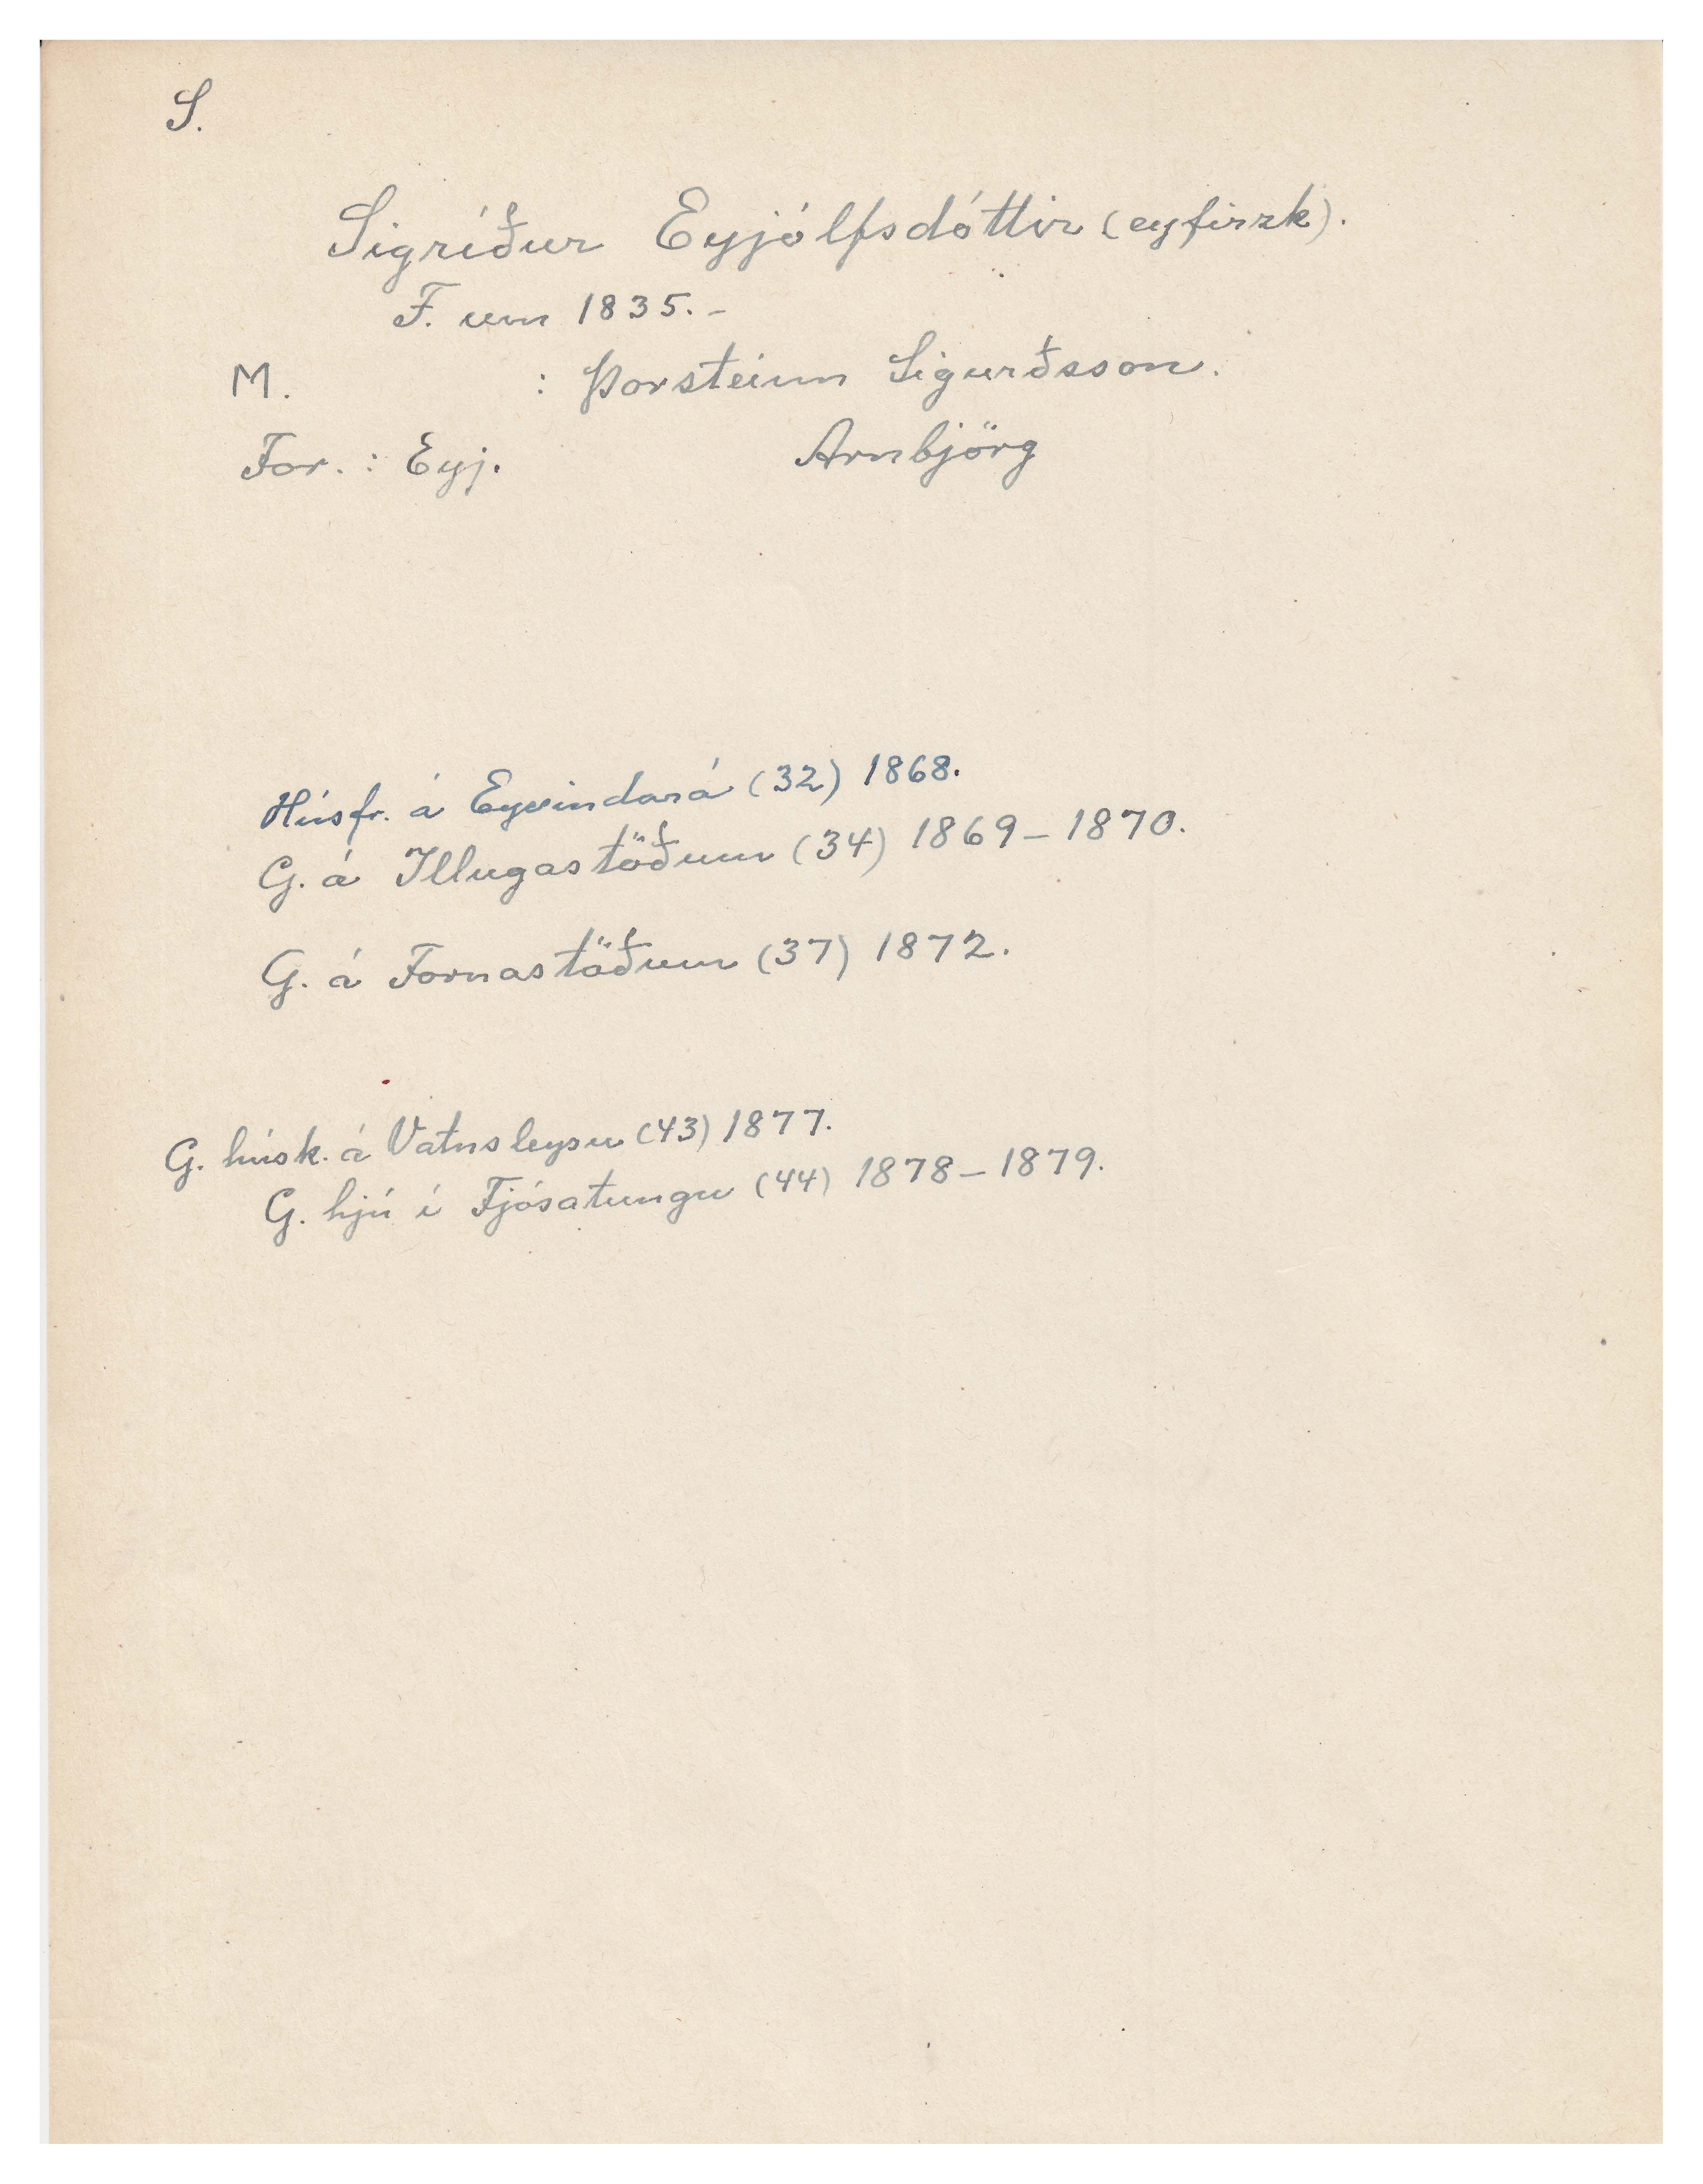 S.
Sigríður Eyjólfsdóttir (eyfirzk).
F. um 1835.-
M. : Þorsteinn Sigurðsson.
For. : Eyj. Arnbjörg
Húsfr. á Eyvindará (32) 1868.
G. á Illugastöðum (34) 1869-1870.
G. á Fornastöðum (37) 1872.
G. húsk. á Vatnsleysu (43) 1877.
G. hjú í Fjósatungu (44) 1878-1879.